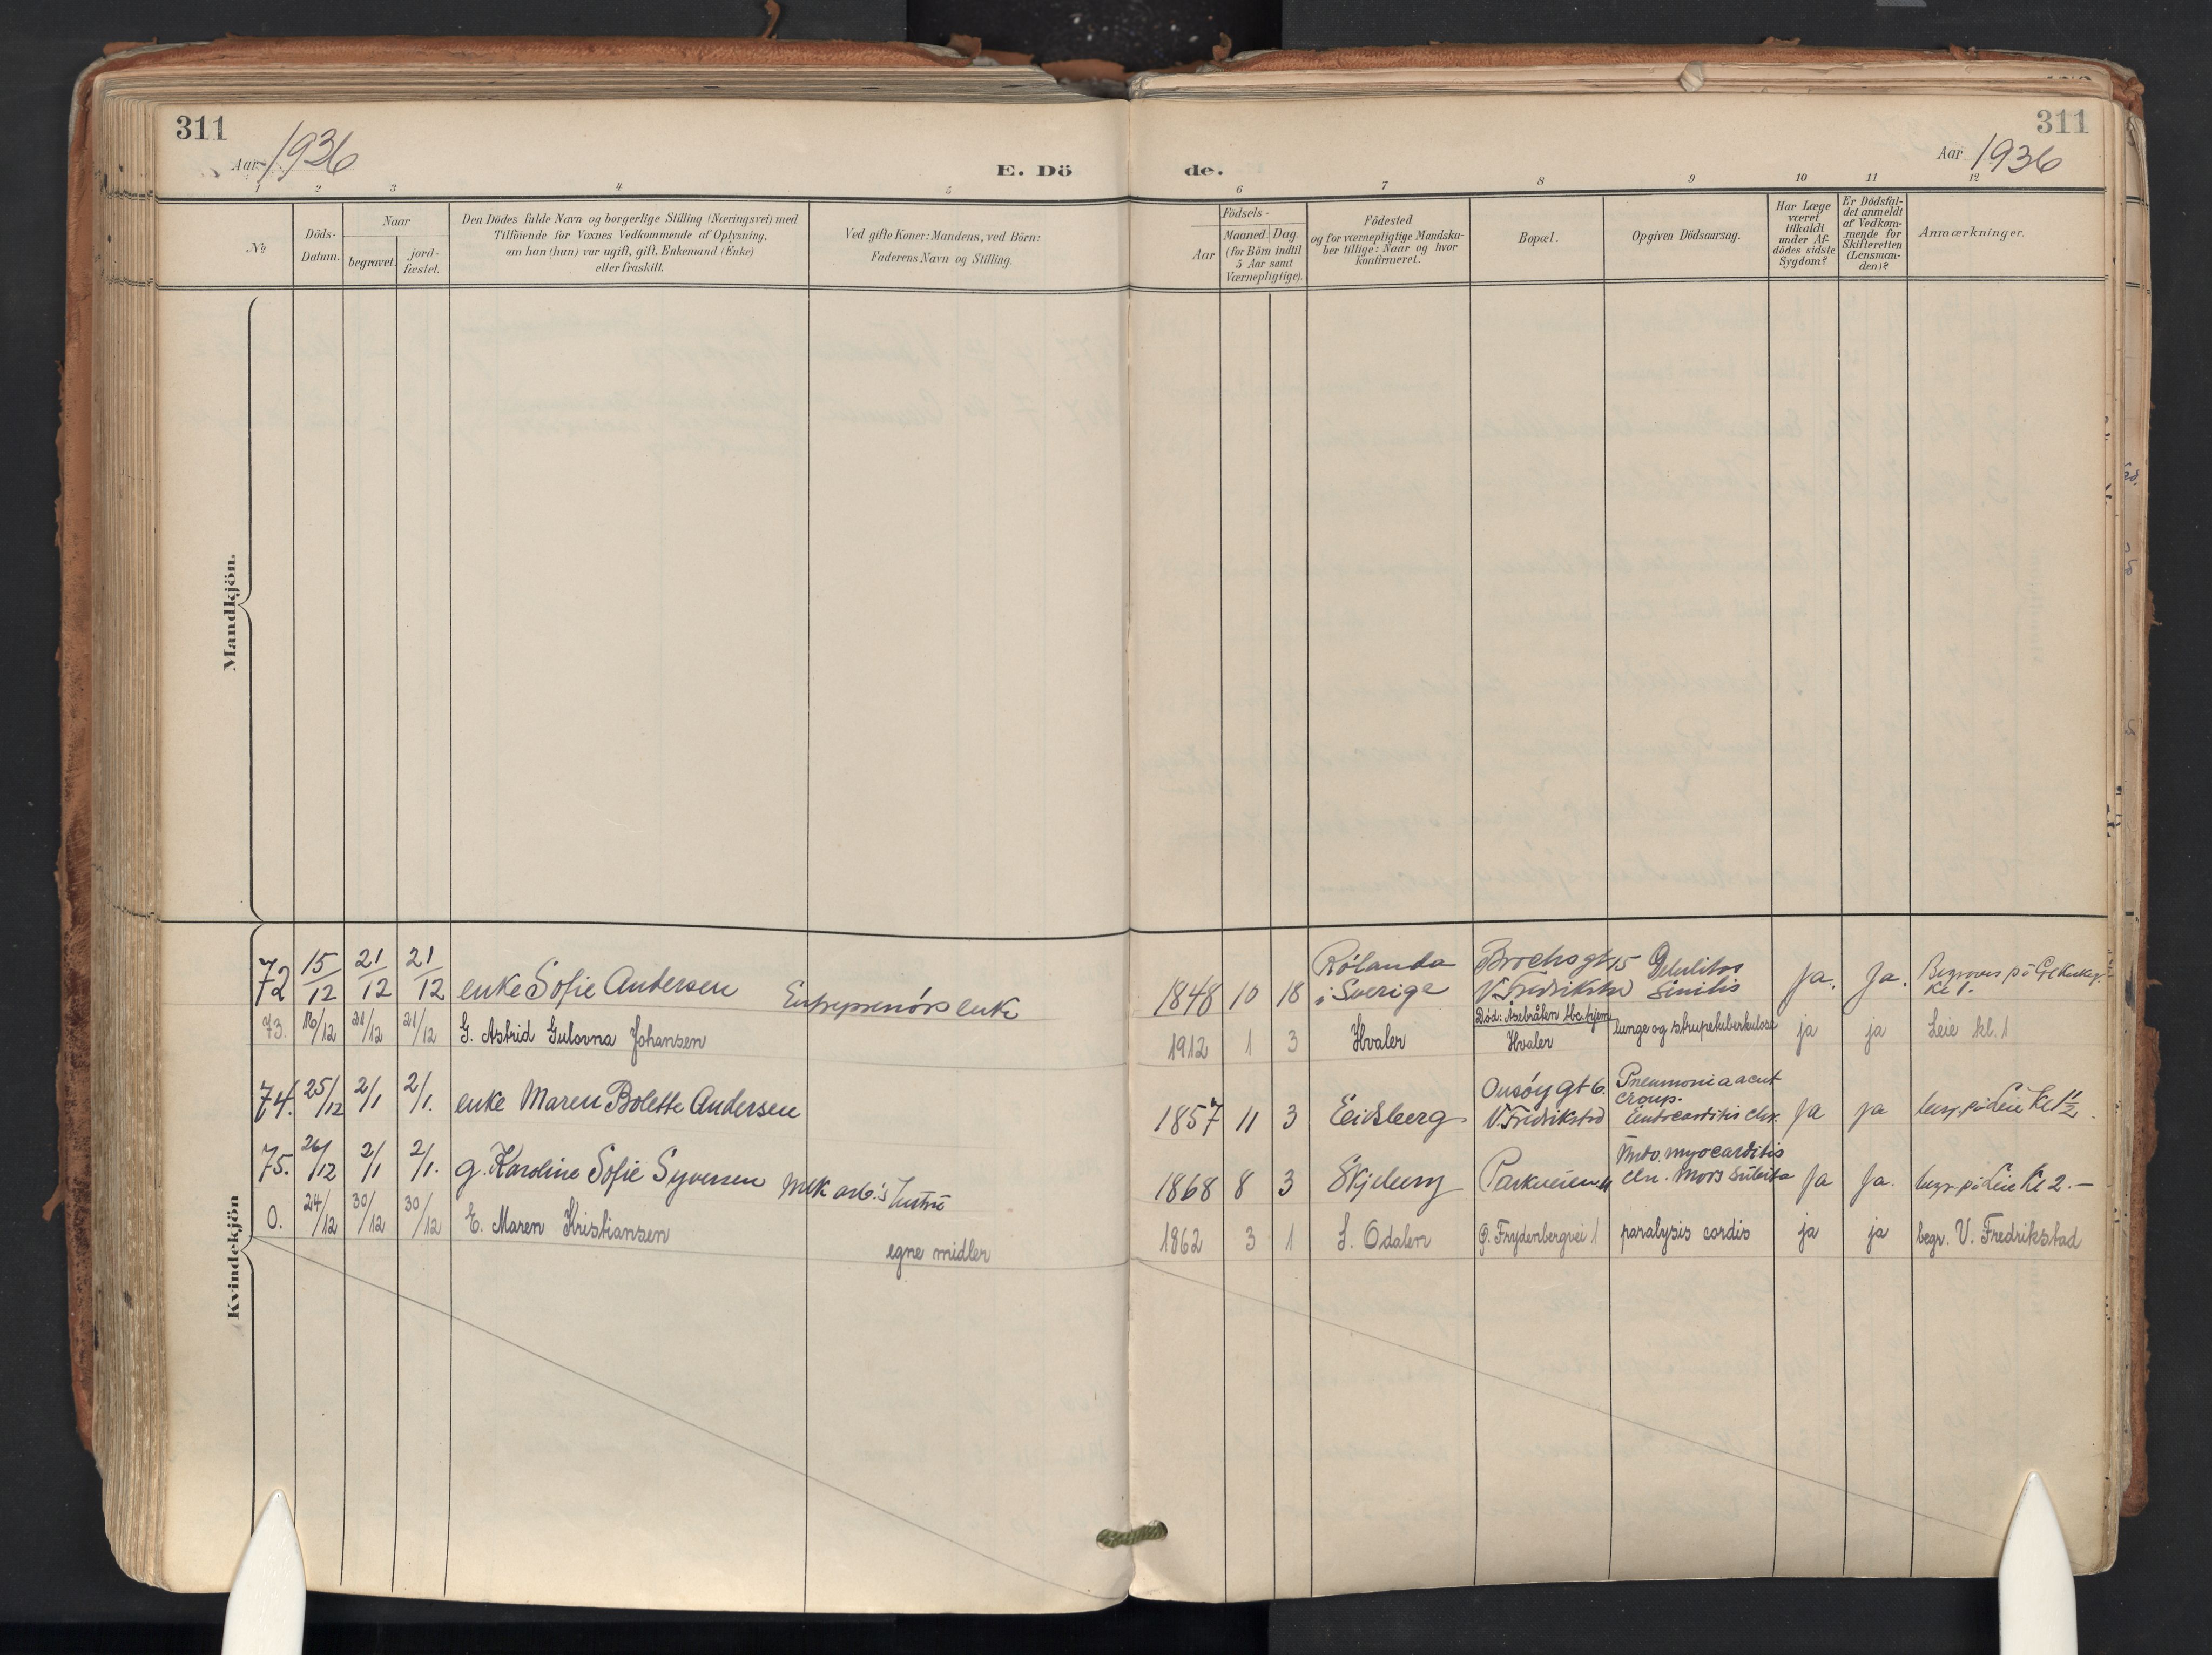 311
Aar 1936
E. Dö
de.
311
Aar 1936
1 2 3 4 5 6 7 8 9 10 11 12
No
Döds-
Datum.
Naar
begravet.
jord-
fæstet.
Den Dödes fulde Navn og borgerlige Stilling (Næringsvei) med
Tilföiende for Voxnes Vedkommende af Oplysning,
om han (hun) var ugift, gift, Enkemand (Enke)
eller fraskilt.
Ved gifte Koner: Mandens, ved Börn:
Faderens Navn og Stilling.
Födsels-
Aar
Maaned. Dag.
(for Börn indtil
5 Aar samt
Værnepligtige).
Födested
og for værnepligtige Mandska-
ber tillige: Naar og hvor
konfirmeret.
Bopæl.
Opgiven Dödsaarsag.
Har Læge
været
tilkaldt
under Af-
dödes sidste
Sygdom?
Er Dödsfal-
det anmeldt
af Vedkom-
mende for
Skifteretten
(Lensman-
den)?
Anmærkninger.
Mandkjön.
Kvindekjön
72 15/12 21/12 21/12 enke Sofie Andersen Entreprenørs enke 1848 10 18
Rölanda
i Sverige
15
V. Fredrikstad
Senilis
Ja. Ja.
Begraves på
Kl 1.
73. 16/12 21/12 21/12 G. Astrid Gulovna Johansen 1912 1 3 Hvaler
Død: tbc. hjem
Hvaler
lunge og strupetuberkulose ja ja Leie kl. 1
74. 25/12 2/1 2/1. enke Maren Bolette Andersen 1857 11 3 Eidsberg
Onsøy gt 6.
V. Fredrikstad
Pneumonia acut
croup.
Endocarditis chr.
Ja ja begr. på Leie Kl 1 1/2.
75. 26/12 2/1 2/1. g. Karoline Sofie Syversen Mek arb.'s hustru 1868 8 3 Skjeberg Parkveien
myocarditis
chr. Mors subita
Ja Ja. begr. på Leie Kl 2.-
0. 24/12 30/12 30/12 E. Maren Kristiansen
egne midler
1862 3 1 S. Odalen Ø. Frydenbergvei 1 paralysis cordis ja ja begr. V. Fredrikstad